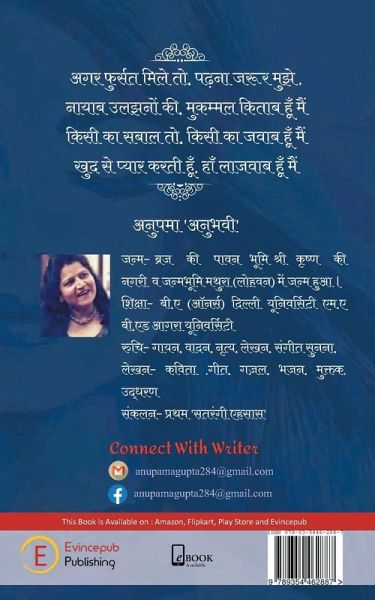 अगर फुर्सत मिले तो, पढ़ना जरूर मुझे,
नायाब उलझनों की, मुकम्मल किताब हूँ मैं
किसी का सबाल तो, किसी का जवाब हूँ मैं
खुद से प्यार करती हूँ, हाँ लाजवाब हूँ मैं
अनुपमा 'अनुभवी'
जन्म- ब्रज की पावन भूमि श्री कृष्ण की
नगरी व जन्मभूमि मथुरा (लोहवन) में जन्म हुआ।
शिक्षा- बी.ए (ऑनर्स) दिल्ली यूनिवर्सिटी एम.ए
बी.एड आगरा यूनिवर्सिटी
रुचि- गायन, वादन, नृत्य, लेखन, संगीत सुनना,
लेखन- कविता ,गीत, गज़ल, भजन, मुक्तक,
उद्धरण
संकलन- प्रथम 'सतरंगी एहसास'
Connect With Writer
anupamagupta284@gmail.com
anupamagupta284@gmail.com
This Book is Available on : Amazon, Flipkart, Play Store and Evincepub
E
Evincepub
Publishing
e BOOK
Available
ISBN 978-93-5446-288-7
9 789354 462887 >